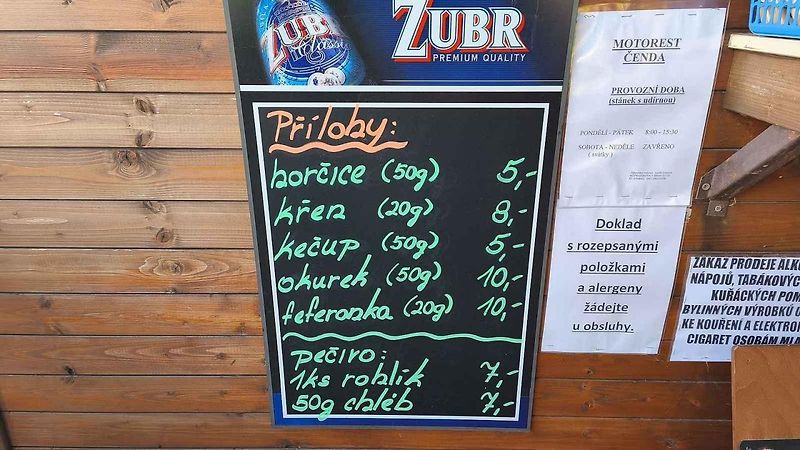 ZUBR
ZUBR
PREMIUM QUALITY
Přílohy:
horčice (50g) 5,-
křen (20g) 8,-
kečup (50g) 5,-
okurek (50g) 10,-
feferonka (20g) 10,-
pečivo:
1ks rohlík 7,-
50g chléb 7,-
MOTOREST
ČENDA
PROVOZNÍ DOBA
(stánek s udírnou)
PONDĚLÍ - PÁTEK 8:00 - 15:30
SOBOTA - NEDĚLE ZAVŘENO
(svátky)
Doklad
s rozepsanými
položkami
a alergeny
žádejte
u obsluhy.
ZÁKAZ PRODEJE ALKO
NÁPOJŮ, TABÁKOVÝC
KUŘÁCKÝCH POM
BYLINNÝCH VÝROBKŮ
KE KOUŘENÍ A ELEKTRON
CIGARET OSOBÁM MLA